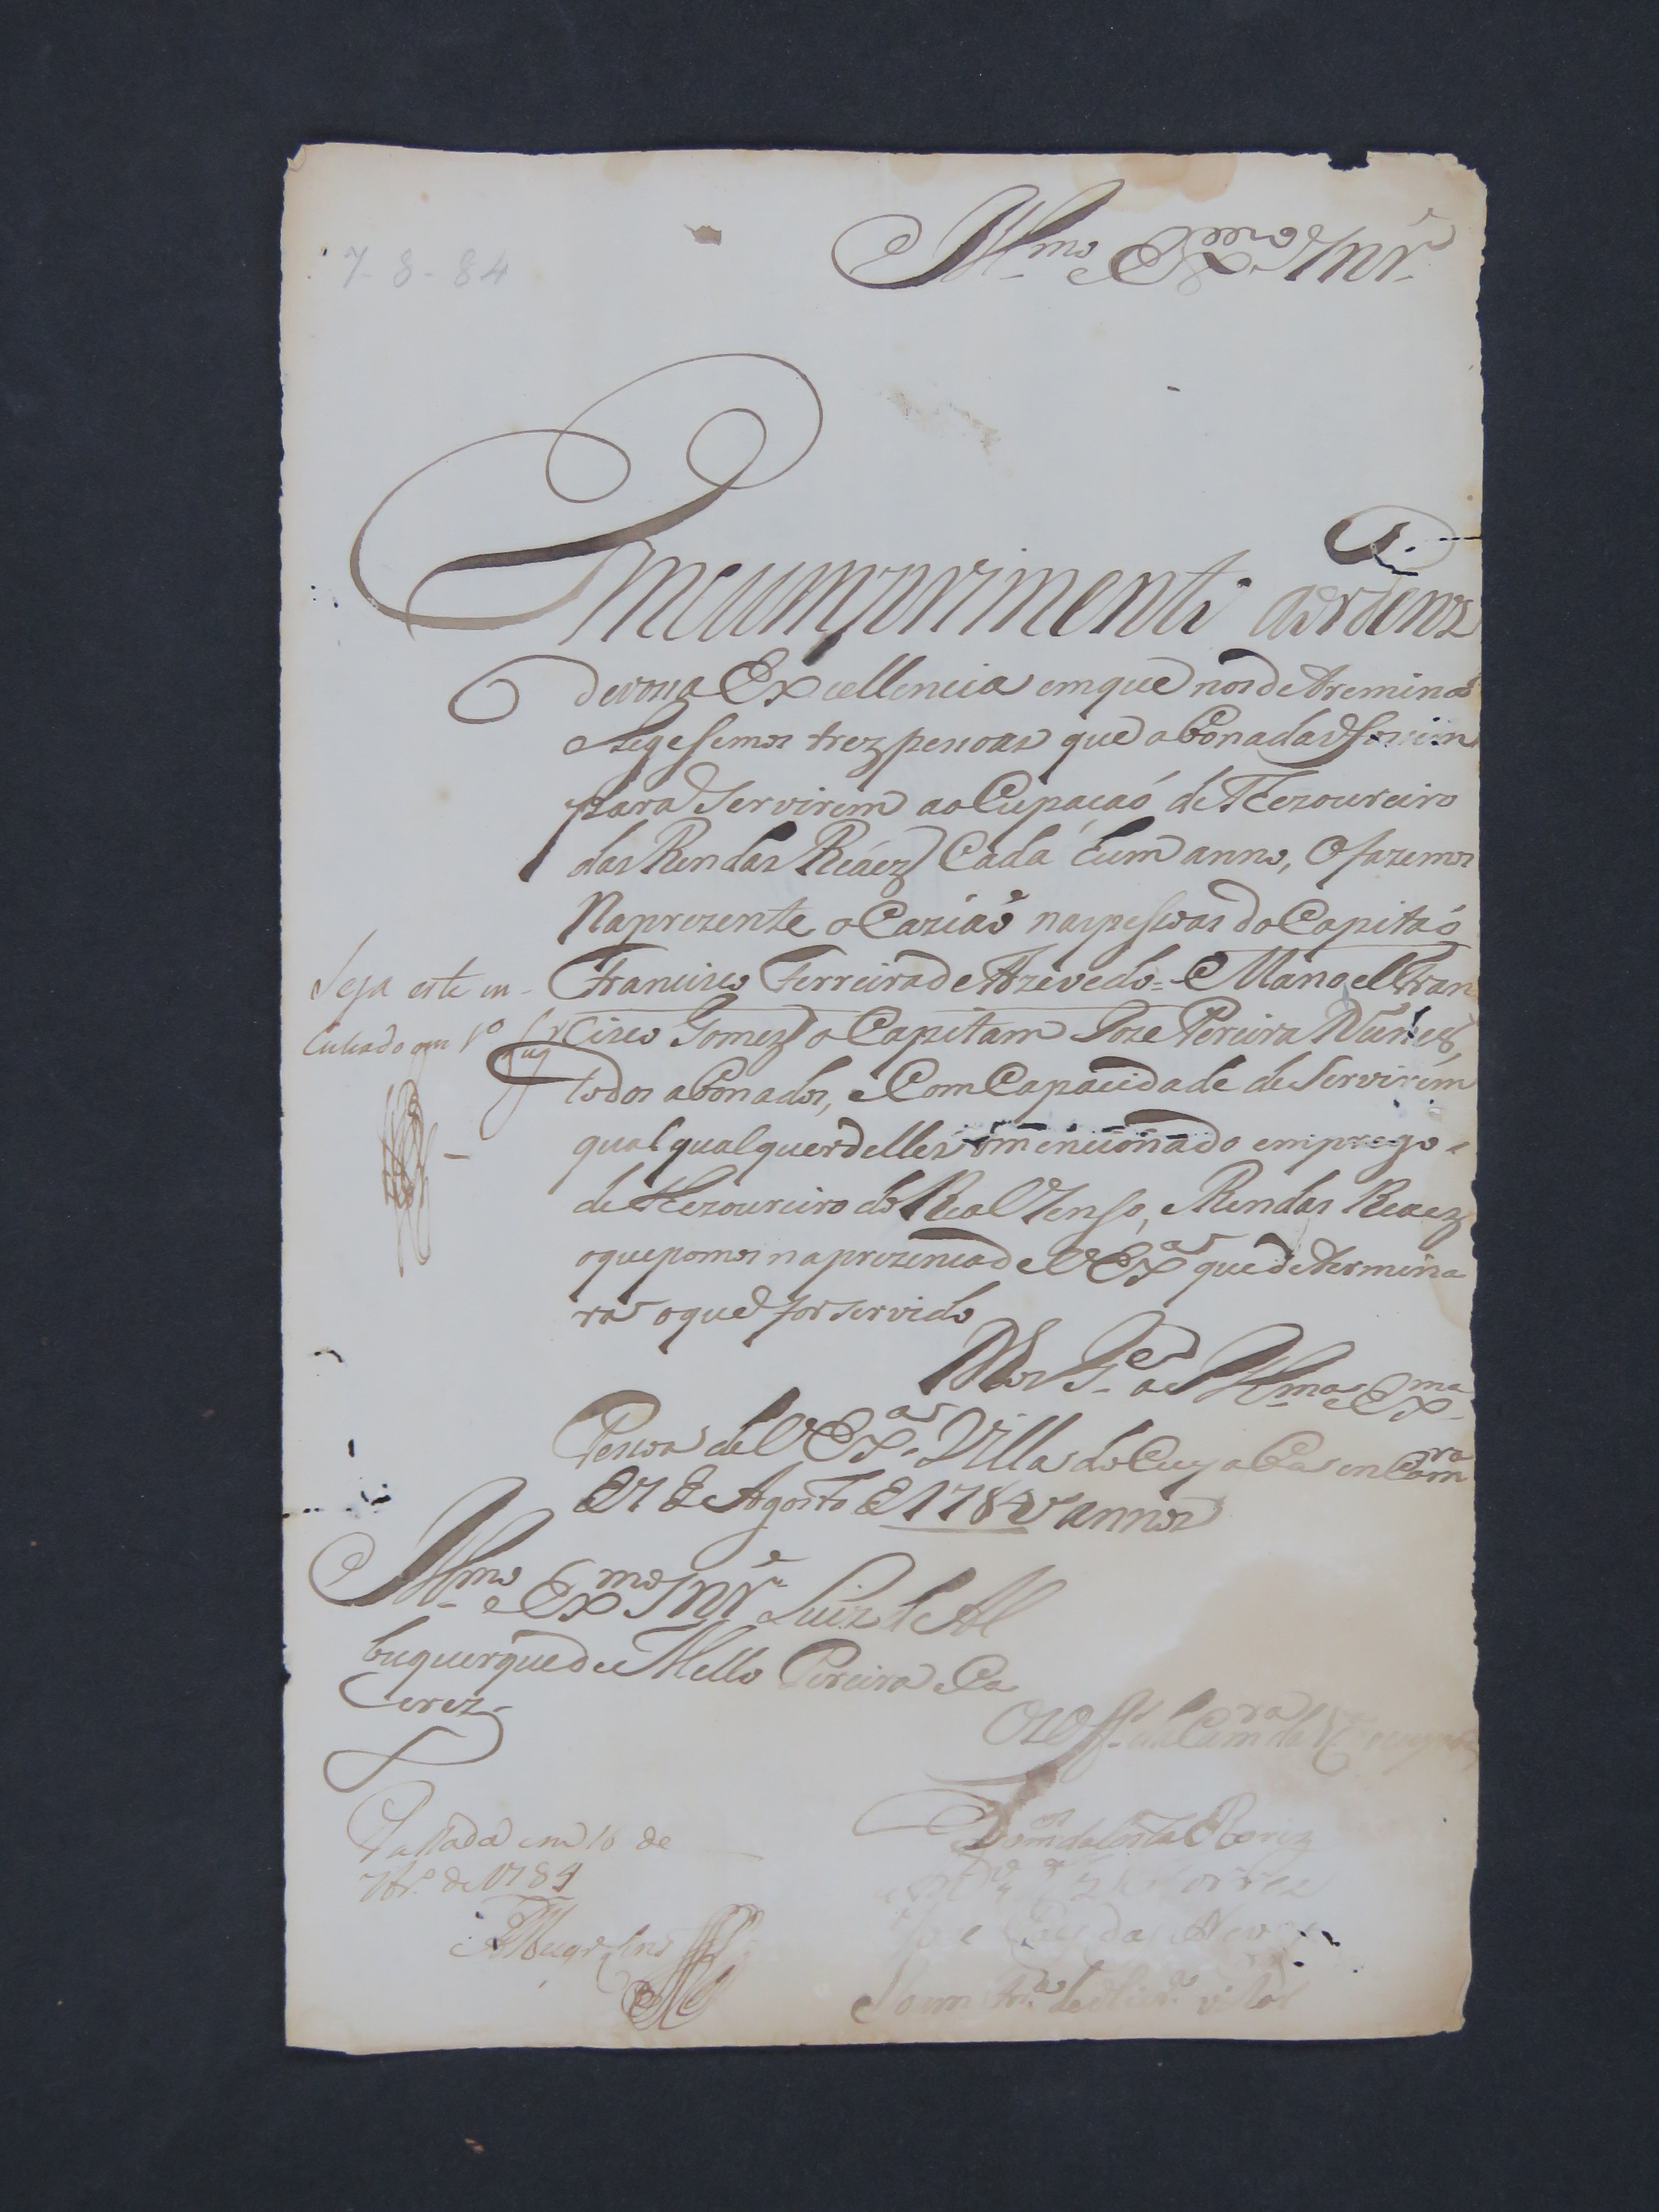 7-8-84
Illmo e Exmo Snr.
Em cumprimento as ordens
de vossa Excellencia em que nos detremina
elegesemos trez pessoas que abonadas fossem
para servirem aoCupaçaó de Thezoureiro
das Rendas Reáez Cada hum anno, o fazemos
Na prezente oCaziaõ nas pessoas do Capitaó
Francisco Ferreira de Azevedo = e Manoel Fran
Cisco Gomez o Capitam Joze Pereira Nunes,
todos abonados, e Com Capacidade de Servirem
qual qualquer delles o mencionado emprego
de Thezoureiro do Real, e Rendas Reaez
o que pomos na prezencia de VExa que detremina
ra o que for servido
Deos Ge a Illma e Exma
Pessoa de VExa. Villa do Cuyaba em Camra
de 7 de Agosto de 1784 annos
Illmo e Exmo Snr Luiz de Al
buquerque de Mello Pereira e Ca
cerez
Seja este en
Os Offes da Camra da Va do Cuyaba
Domos da Costa
das Neves
em 10 de
7bro de 1784